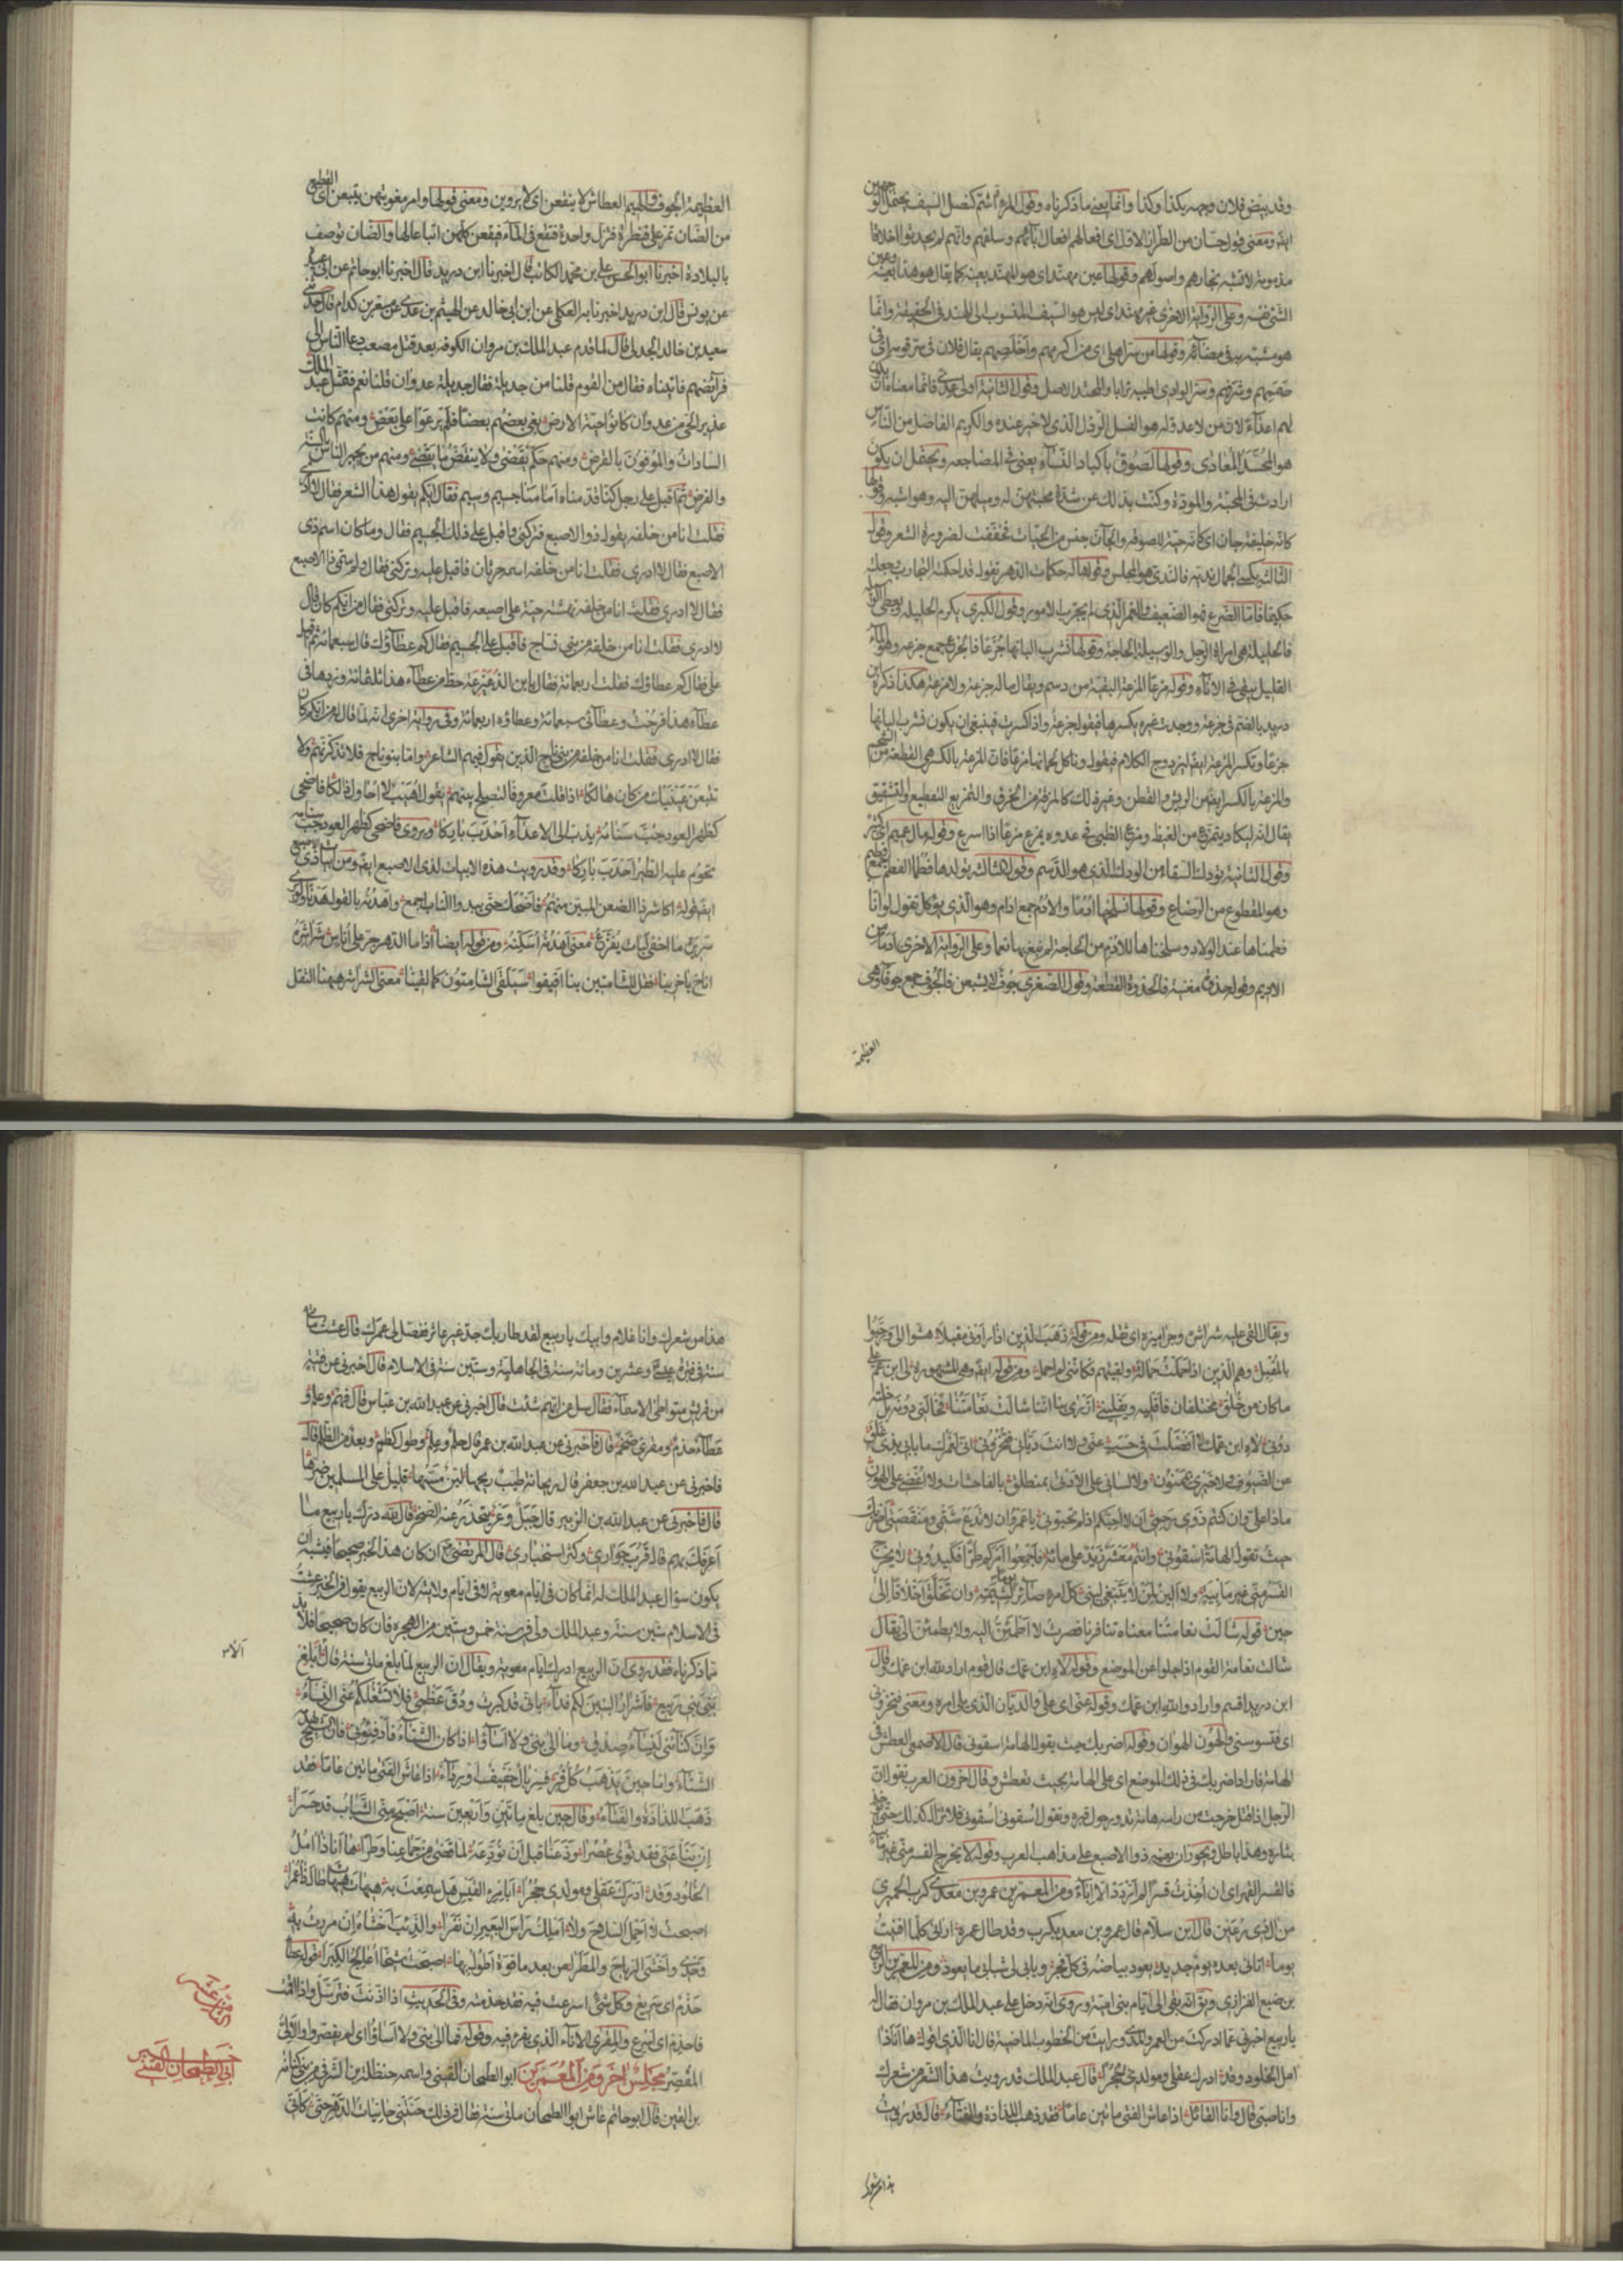 وقد يبتض فلان وجهه بكذا وكذا وانما يعنى ما ذكرناه وقول المرة اشم كنصل السيف يحتمل الو جهين
ايضا ومعنى قول حسان من الطراز الاول اى افعالهم افعال آبائهم وسلفهم وانهم لم يحدثوا اخلاقا
مذمومة لا تشبه نجارهم واصولهم وقولها عين مهتدى اى هو المهتد بعينه كما يقال هو هذا بعينه وعين
الشئ نفسه وعلى الرواية الاخرى غير مهتدى اى ليس هو السيف المنسوب الى الهند فى الحقيقة وانما
هو مشبه به فى مضائه وقولها من سر اهلى اى من اكرمهم واخلصهم يقال فلان فى سر قومه اى فى
صميمهم وشرفهم وسر الوادى اطيبه ترابا والمحتد الاصل وقول الثانية اولى عدى فانما معناه ان يكون
لهم اعداء لان من لا عدو له هو الفسل الرذل الذى لا خير عنده والكريم الفاضل من الناس
هو المحسد المعادى وقولها لصوق باكباد النساء يعنى فى المضاجعة ويحتمل ان يكون
ارادت فى المحبة والمودة وكنت بذلك عن شدة محبتهن له وميلهن اليه وهو اشبه وقولها
كانه خليفة جان اى كانه حية للصوقه والجان جنس من الحيات فخففت لضرورة الشعر وقول
الثالثة يكسى الجمال نديه فالندى هو المجلس وقولها له حكمات الدهر تقول قد احكمته التجارب وجعلته
حكيما فاما الضرع فهو الضعيف والغمر الذى لم يجرب الامور وقول الكبرى يكرم الحليلة ويعطى الوسيلة
فالحليلة هى امراة الرجل والوسيلة الحاجة وقولها نشرب البانها جزعا فالجزع جمع جزعة وهو الماء
القليل يبقى فى الاناء وقوله مزعا المزعة البقية من دسم ويقال ماله جزعة ولا مزعة هكذا ذكره ابن
دريد بالضم فى جزعة ووجدت غيره بكسرها فيقول جزعة واذا كسرت فينبغى ان يكون نشرب البانها
جزعا وتكسر المزعة ايضا ليزدوج الكلام فيقول وناكل لحمانها مزعا فان المزعة بالكسر هى القطعة من الشحم
والمزعة بالكسر ايضا من الريش والقطن وغير ذلك كالمزقة من الخرق والتمزيع التقطيع والتشقيق
يقال انه ليكاد يتمزع من الغيظ ومزع الظبى فى عدوه يمزع مزعا اذا اسرع وقوله مال عميم اى كثير
وقول الثانية تودك السقاء من الودك الذى هو الدسم وقول الثالثة نولدها فطما الفطم جمع فطيم
وهو المقطوع من الرضاع وقولها نسلخها ادما والادم جمع ادام وهو الذى يؤكل تقول لو انا
فطمناها عند الولاد وسلخناها للادم من الحاجة لم نبغ بها نعما وعلى الرواية الاخرى ادما من
الاديم وقوله جذو مغنية فالجذوة القطعة وقول الصغرى جوف لا يشبعن فالجوف جمع جوفاء وهى
العظيمة
العظيمة الجوف والهيم العطاش لا ينقعن اى لا يروين ومعنى قولها وامر مغويتهن يتبعن اى القطيع
من الضان تمر على قنطرة فتزل واحدة فتقع فى الماء فيقعن كلهن اتباعا لها والضان توصف
بالبلادة اخبرنا ابو الحسن على بن محمد الكاتب قال اخبرنا ابن دريد قال اخبرنا ابو حاتم عن ابى عبيدة
عن يونس قال ابن دريد واخبرنا به العكلى عن ابن ابى خالد عن الهيثم بن عدى عن مسعر بن كدام قال حدثنى
سعيد بن خالد الجدلى قال لما قدم عبد الملك بن مروان الكوفه بعد قتل مصعب دعا الناس الى
فرائضهم فاتيناه فقال من القوم قلنا من جديلة فقال جديلة عدوان قلنا نعم فتمثل عبد الملك
عذير الحى من عدوان كانوا حية الارض بغى بعضهم بعضا فلم يرعوا على بعض ومنهم كانت
السادات والموفون بالقرض ومنهم حكم يقضى ولا ينقض ما يقضى ومنهم من يجيز الناس بالسنة
والفرض ثم اقبل على رجل كنا قدمناه امامنا جسيم وسيم فقال ايكم يقول هذا الشعر فقال لا ادرى
فقلت انا من خلفه يقوله ذو الاصبع فتركنى واقبل على ذلك الجسيم فقال وما كان اسم ذى
الاصبع فقال لا ادرى فقلت انا من خلفه اسمه حرثان فاقبل عليه وتركنى فقال ولم سمى ذا الاصبع
فقال لا ادرى فقلت انا من خلفه نهشته حية على اصبعه فاقبل عليه وتركنى فقال من ايكم كان قال
لا ادرى فقلت انا من خلفه من بنى ناج فاقبل على الجسيم فقال كم عطاؤك قال سبعمائة ثم اقبل
على فقال كم عطاؤك فقلت اربعمائة فقال يا بن الزعيزعة حط من عطاء هذا ثلثمائة وزدها فى
عطاء هذا فرحت وعطائى سبعمائة وعطاؤه اربعمائة وفى رواية اخرى انه لما قال له من ايكم كان
فقال لا ادرى فقلت انا من خلفه من بنى ناج الذين يقول فيهم الشاعر واما بنو ناج فلا تذكرنهم ولا
تتبعن عينيك من كان هالكا اذا قلت معروفا لتصلح بينهم يقول وهيب لا اخاول ذالكا فاضحى
كظهر العود جب سنامه يدب الى الاعداء احدب باركا ويروى فاضحى كظهر العود جب سنامه
تحوم عليه الطير احدب باركا وقد رويت هذه الابيات لذى الاصبع ايضا ومن ابيات ذى الاصبع
ايضا قوله اكاشر ذا الضغن المبين منهم فاضحك حتى يبدو الناب اجمع واهدنه بالقول هدنا ولو يرى
سريرة ما اخفى لبات يفزع معنى اهدنه اسكنه ومن قوله ايضا اذا ما الدهر جر على اناس شراشره
اناخ باخرينا فقل للشامتين بنا افيقوا سيلقى الشامتون كما لقينا معنى الشراشر هيهنا الثقل
ويقال القى عليه شراشره وجراميزه اى ثقله ومن قوله ذهب الذين اذا راونى مقبلا هشوا الى ورحبوا
بالمقبل وهم الذين اذا حملت حمالة ولقيتهم فكاننى لم احمل ومن قوله ايضا وهى المشهورة لى ابن عم على
ما كان من خلق مختلفان فاقليه ويقلينى ازرى بنا اننا شالت نعامتنا فخالنى دونه بل خلته
دونى لاه ابن عمك لا افضلت فى حسب عنى ولا انت ديانى فتخزونى انى لعمرك ما بابى بذى غلق
عن الضيوف ولا خيرى بممنون ولا لسانى على الادنى بمنطلق بالفاحشات ولا اغضى على الهون
ماذا على وان كنتم ذوى رحمى ان لا احبكم اذ لم تحبونى يا عمرو ان لا تدع شتمى ومنقصتى اضربك
حيث تقول الهامة اسقونى وانتم معشر زيد على مائة فاجمعوا امركم طرا فكيدونى لا يخرج
القسر منى غير مابية ولا الين لمن لا يبتغى لينى كل امرء صائر يوما لشيمته وان تخلق اخلاقا الى
حين قوله شالت نعامتنا معناه تنافرنا فصرت لا اطمئن اليه ولا يطمئن الى يقال
شالت نعامة القوم اذا جلوا عن الموضع وقوله لاه ابن عمك قال قوم اراد لله ابن عمك وقال
ابن دريد اقسم واراد والله ابن عمك وقوله عنى اى على والديان الذى يلى امره ومعنى فتخزونى
اى فتسوسنى والهون الهوان وقوله اضربك حيث يقول الهامة اسقونى قال الاصمعى العطش فى
الهامة فاراد اضربك فى ذلك الموضع اى على الهامة بحيث تعطش وقال اخرون العرب تقول ان
الرجل اذا قتل خرجت من راسه هامة تدور حول قبره وتقول اسقونى اسقونى فلا تزال كذلك حتى يؤخذ
بثاره وهذا باطل ويجوز ان يعنيه ذو الاصبع على مذاهب العرب وقوله لا يخرج القسر منى غير مابية
فالقسر القهر اى ان اخذت قسرا لم ازدد الا اباء ومن المعمرين عمرو بن معدى كرب الحميرى
من ال ذى رعين قال ابن سلام قال عمرو بن معديكرب وقد طال عمره ارانى كلما افنيت
يوما اتانى بعده يوم جديد يعود بياضه فى كل فجر ويابى لى شبابى ما يعود ومن المعمرين الربيع
بن ضبع الفزارى ويقال انه بقى الى ايام بنى امية وروى انه دخل على عبد الملك بن مروان فقال له
يا ربيع اخبرنى عما ادركت من العمر والمدى ورايت من الخطوب الماضية قال انا الذى اقول ها انا ذا
امل الخلود وقد ادرك عقلى ومولدى حجرا قال عبد الملك قد رويت هذا الشعر من شعرك
وانا صبى قال وانا القائل اذا عاش الفتى مائتين عاما فقد ذهب اللذاذة والفتاء قال قد رويت
هذا من شعرك
هذا من شعرك وانا غلام وابيك يا ربيع لقد طار بك جد غير عاثر ففصل لى عمرك قال عشت مائتى
سنة فى فترة عيسى وعشرين ومائة سنة فى الجاهلية وستين سنة فى الاسلام قال اخبرنى عن فتية
من قريش متواطئ الاسماء فقال سل عن ايهم شئت قال اخبرنى عن عبد الله بن عباس قال فهم وعلم و
عطاء جذم ومقرى ضخم قال فاخبرنى عن عبد الله بن عمر قال حلم وعلم وطول كظم وبعد من الظلم قال
فاخبرنى عن عبد الله بن جعفر قال ريحانة طيب ريحها لين مسها قليل على المسلمين ضررها
قال فاخبرنى عن عبد الله بن الزبير قال جبل وعر ينحدر عنه الصخر قال لله درك يا ربيع ما
اعرفك بهم قال قرب جوارى وكثر استخبارى قال المرتضى ان كان هذا الخبر صحيحا فيشبه ان
يكون سؤال عبد الملك له انما كان فى ايام معوية لا فى ايام ولايته لان الربيع يقول فى الخبر عشت
فى الاسلام ستين سنة وعبد الملك ولى فى سنة خمس وستين من الهجرة فان كان صحيحا فلا بد
مما ذكرناه فقد روى ان الربيع ادرك ايام معوية ويقال ان الربيع لما بلغ مائتى سنة قال الا ابلغ
بنى بنى ربيع فاشرار البنين لكم فداء بانى قد كبرت ودق عظمى فلا تشغلكم عنى النساء
وان كنائنى لنساء صدق وما الى بنى ولا اساؤا اذا كان الشتاء فادفئونى فان الشيخ يهدمه
الشتاء واما حين يذهب كل قر فسربال خفيف او رداء اذا عاش الفتى مائتين عاما فقد
ذهب اللذاذة والفتاء وقال حين بلغ مائتين واربعين سنة اصبح منى الشباب قد حسرا
ان ينا عنى فقد ثوى عصرا ودعنا قبل ان نودعه لما قضى من جماعنا وطرا ها انا ذا امل
الخلود وقد ادرك عقلى ومولدى حجرا ابا امرء القيس هل سمعت به هيهات هيهات طال ذا عمرا
اصبحت لا احمل السلاح ولا املك راس البعير ان نفرا والذئب اخشاه ان مررت به
وحدى واخشى الرياح والمطرا من بعد ما قوة اطول بها اصبحت شيخا اعالج الكبرا قوله عطاء
جذم اى سريع وكل شئ اسرعت فيه فقد جذمته وفى الحديث اذا اذنت فترسل واذا اقمت
فاحذم اى اسرع والمقرى الاناء الذى يقرى فيه وقوله ما الى بنى ولا اساؤا اى لم يقصروا والالى
المقصر مجلس اخر ومن المعمرين ابو الطمحان القينى واسمه حنظلة بن الشرقى من بنى كنانة
بن القين قال ابو حاتم عاش ابو الطمحان مائتى سنة فقال فى ذلك حنتنى حانيات الدهر حتى كانى